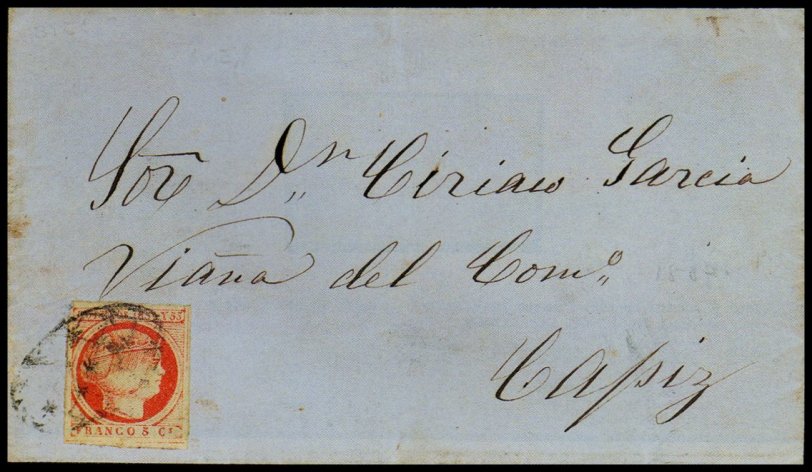 Sor Dn Ciriaco Garcia
Viaña del Como
Capiz
Y 55
FRANCO 5 Cs